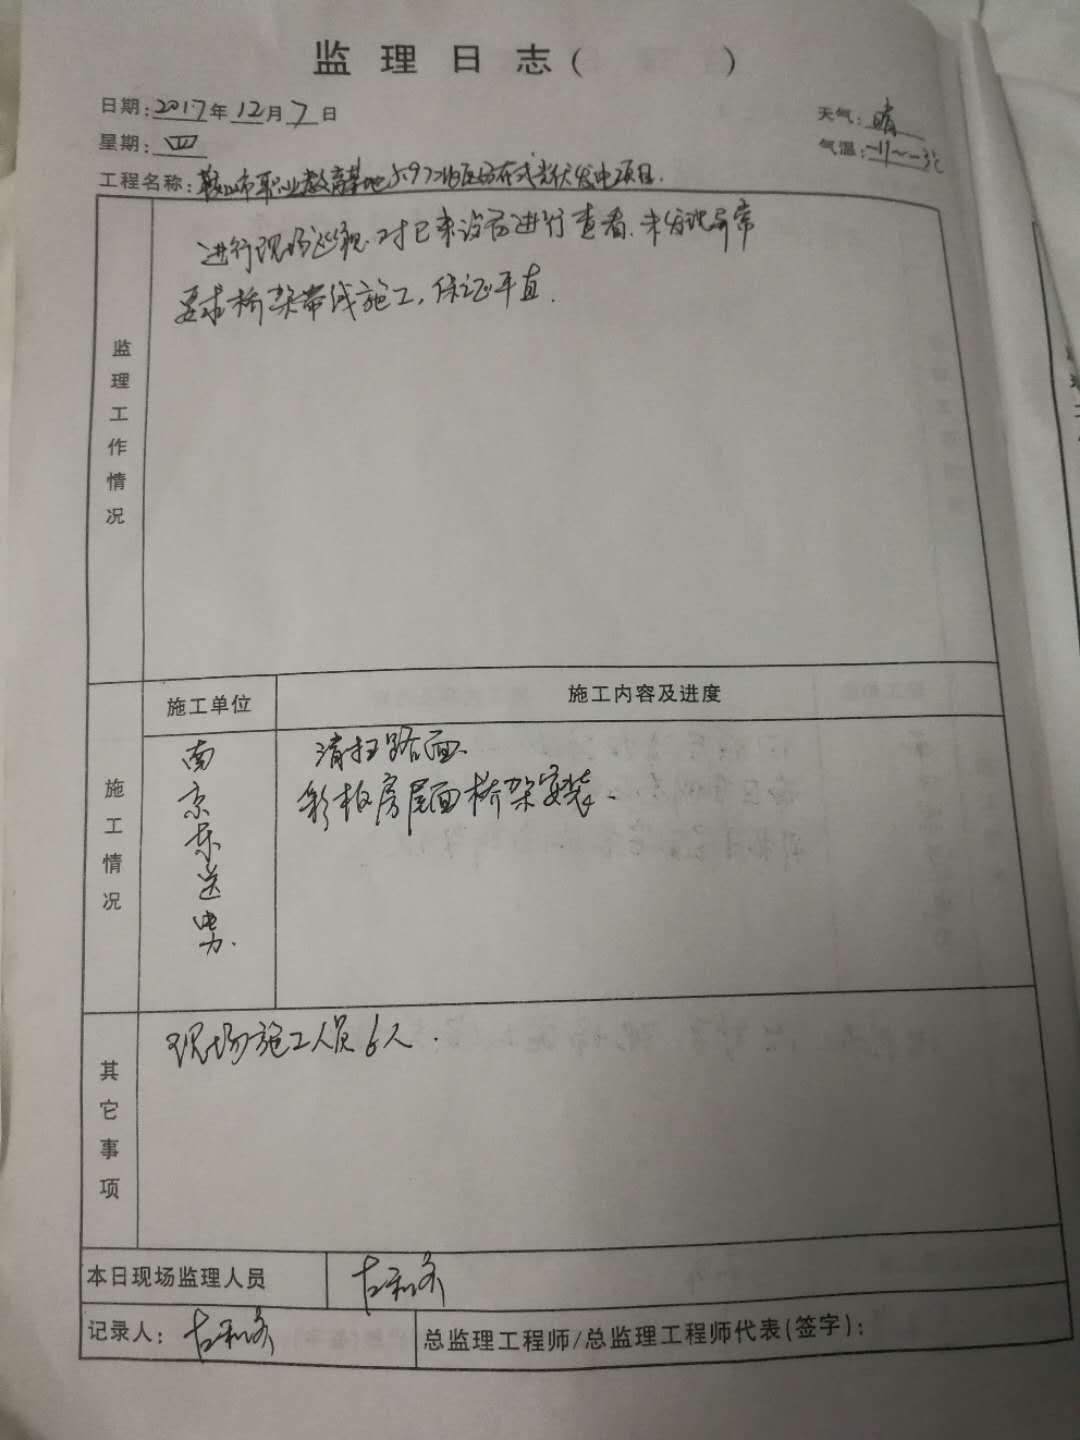 监理日志(      )
日期:2017年12月7日
天气:晴
星期:四
气温:-11~-3℃
工程名称:鞍山市职业教育基地5.97MW分布式光伏发电项目.
监理工作情况
进行现场巡视.对已来设备进行查看.未发现异常
要求桥架带线施工,保证平直.
施工情况
施工单位
施工内容及进度
南京 送电力.
清扫路面.
彩板房屋面桥架安装.
其它事项
现场施工人员6人.
本日现场监理人员
记录人:
总监理工程师/总监理工程师代表(签字):